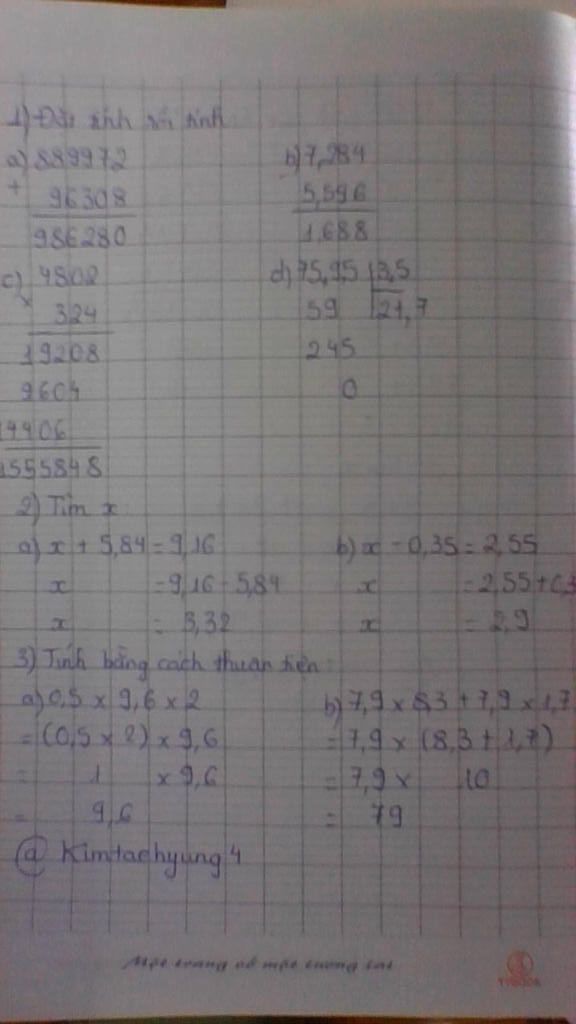 1) Đặt tính rồi tính
a) 889972 b) 7,284
+ 96308 5,596
986280 1,688
c) 4802 d) 75,95 3,5
× 324 59 21,7
19208 245
9604 0
14406
1555848
2) Tìm x
a) x + 5,84 = 9,16 b) x - 0,35 = 2,55
x = 9,16 - 5,84 x = 2,55 + 0,3
x = 3,32 x = 2,9
3) Tính bằng cách thuận tiện
a) 0,5 x 9,6 x 2 b) 7,9 x 8,3 + 7,9 x 1,7
= (0,5 x 2) x 9,6 = 7,9 x (8,3 + 1,7)
= 1 x 9,6 = 7,9 x 10
= 9,6 = 79
@ Kimtaehyung4
Một trang vở một tương lai